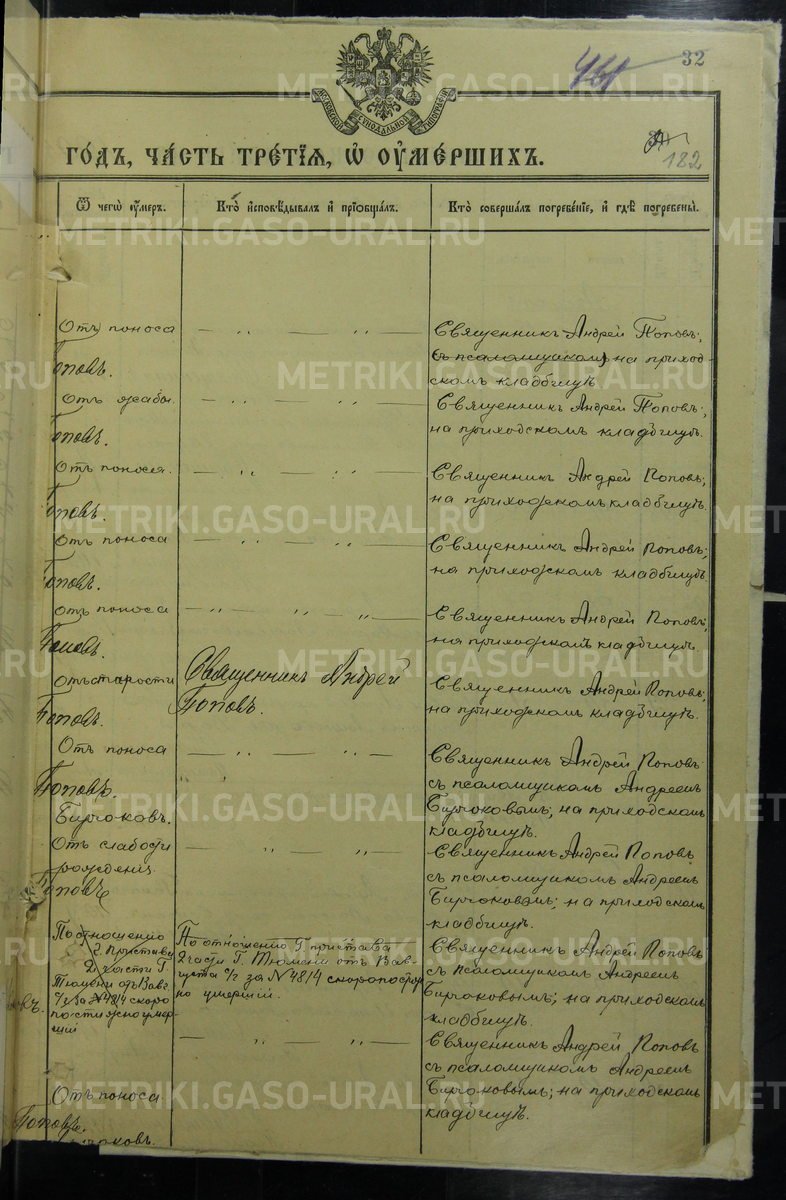 32
461
182
МОСКОВСКОЙ СѴНОДАЛЬНОЙ ТИПОГРАФІИ
ГОДЪ, ЧАСТЬ ТРЕТІЯ, Ѿ ОУМЕРШИХЪ.
Ѿ чегѡ оумеръ.
Кто исповѣдывалъ и пріобщалъ.
Кто совершалъ погребеніе, и гдѣ погребены.
Отъ поноса — „ — „ —
Священникъ Андрей Поповъ;
съ псаломщикомъ, на приход-
скомъ кладбищѣ
Поповъ.
Отъ жабы. — „ — „ —
Священникъ Андрей Поповъ;
на приходскомъ кладбищѣ.
Поповъ.
Отъ поноса. — „ — „ —
Священникъ Андрей Поповъ;
на приходскомъ кладбищѣ.
Поповъ.
Отъ поноса — „ — „ —
Священникъ Андрей Поповъ;
на приходскомъ кладбищѣ
Поповъ.
Отъ поноса — „ — „ —
Священникъ Андрей Поповъ;
на приходскомъ кладбищѣ.
Поповъ.
Отъ старости
Священникъ Андрей
Поповъ.
Священникъ Андрей Поповъ;
на приходскомъ кладбищѣ.
Поповъ.
Отъ поноса — „ — „ —
Священникъ Андрей Поповъ
съ псаломщикомъ Андреемъ
Бирюковымъ; на приходскомъ
кладбищѣ.
Поповъ.
Бирюковъ.
Отъ слабости
рожденія
— „ — „ —
Священникъ Андрей Поповъ
съ псаломщикомъ Андреемъ
Бирюковымъ; на приходскомъ
кладбищѣ.
Поповъ
По отношенію
г. Пристава
2 части Г.
Тюмени отъ 8 авг.
с/г за № 4814 скоро
постижно умер-
шій
По отношенію Г. пристава
2 части Г. Тюмени отъ 8 ав-
густа с/г за № 4814 скоропостиж
но умершій.
Священникъ Андрей Поповъ
съ псаломщикомъ Андреемъ
Бирюковымъ; на приходскомъ
кладбищѣ.
овъ.
Отъ поноса
— „ — „ —
Священникъ Андрей Поповъ
съ псаломщикомъ Андреемъ
Бирюковымъ; на приходскомъ
кладбищѣ.
Поповъ.
Бирюковъ.
METRIKI.GASO-URAL.RU